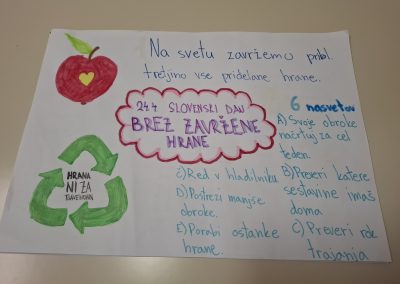 Na svetu zavržemo pribl.
tretjino vse pridelane hrane.
24.4 SLOVENSKI DAN
BREZ ZAVRŽENE
HRANE
6 nasvetov
A) Svoje obroke
načrtuj za cel
teden.
B) Preveri katere
sestavine imaš
doma
C) Preveri rok
trajanja
Č) Red v hladilniku.
D) Postrezi manjše
obroke.
E) Porabi ostanke
hrane.
HRANA
NI ZA